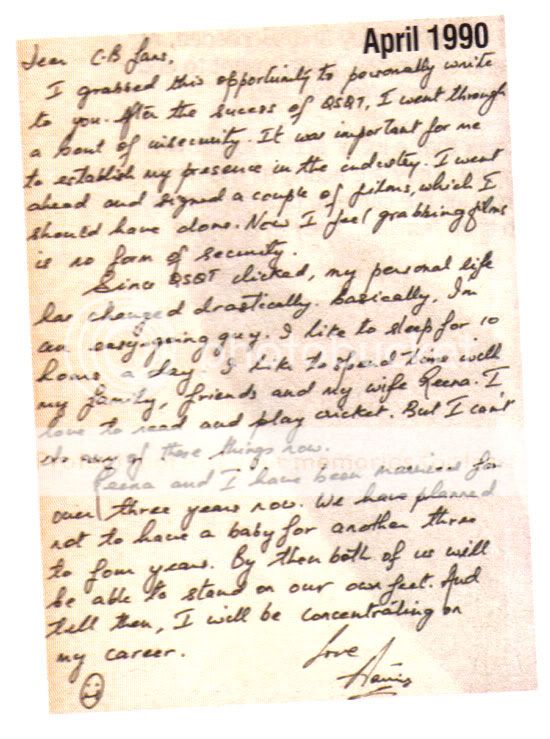 April 1990
Dear C.B fans,
I grabbed this opportunity to personally write
to you. After the success of QSQT, I went through
a bout of insecurity. It was important for me
to establish my presence in the industry. I went
ahead and signed a couple of films, which I
should have done. Now I feel grabbing films
is no form of security.
Since QSQT clicked, my personal life
has changed drastically. Basically, I'm
an easy-going guy. I like to sleep for 10
hours a day. I like to spend time with
my family, friends and my wife Reena. I
love to read and play cricket. But I can't
do any of these things now.
Reena and I have been married for
over three years now. We have planned
not to have a baby for another three
to four years. By then both of us will
be able to stand on our own feet. And
till then, I will be concentrating on
my career.
Love